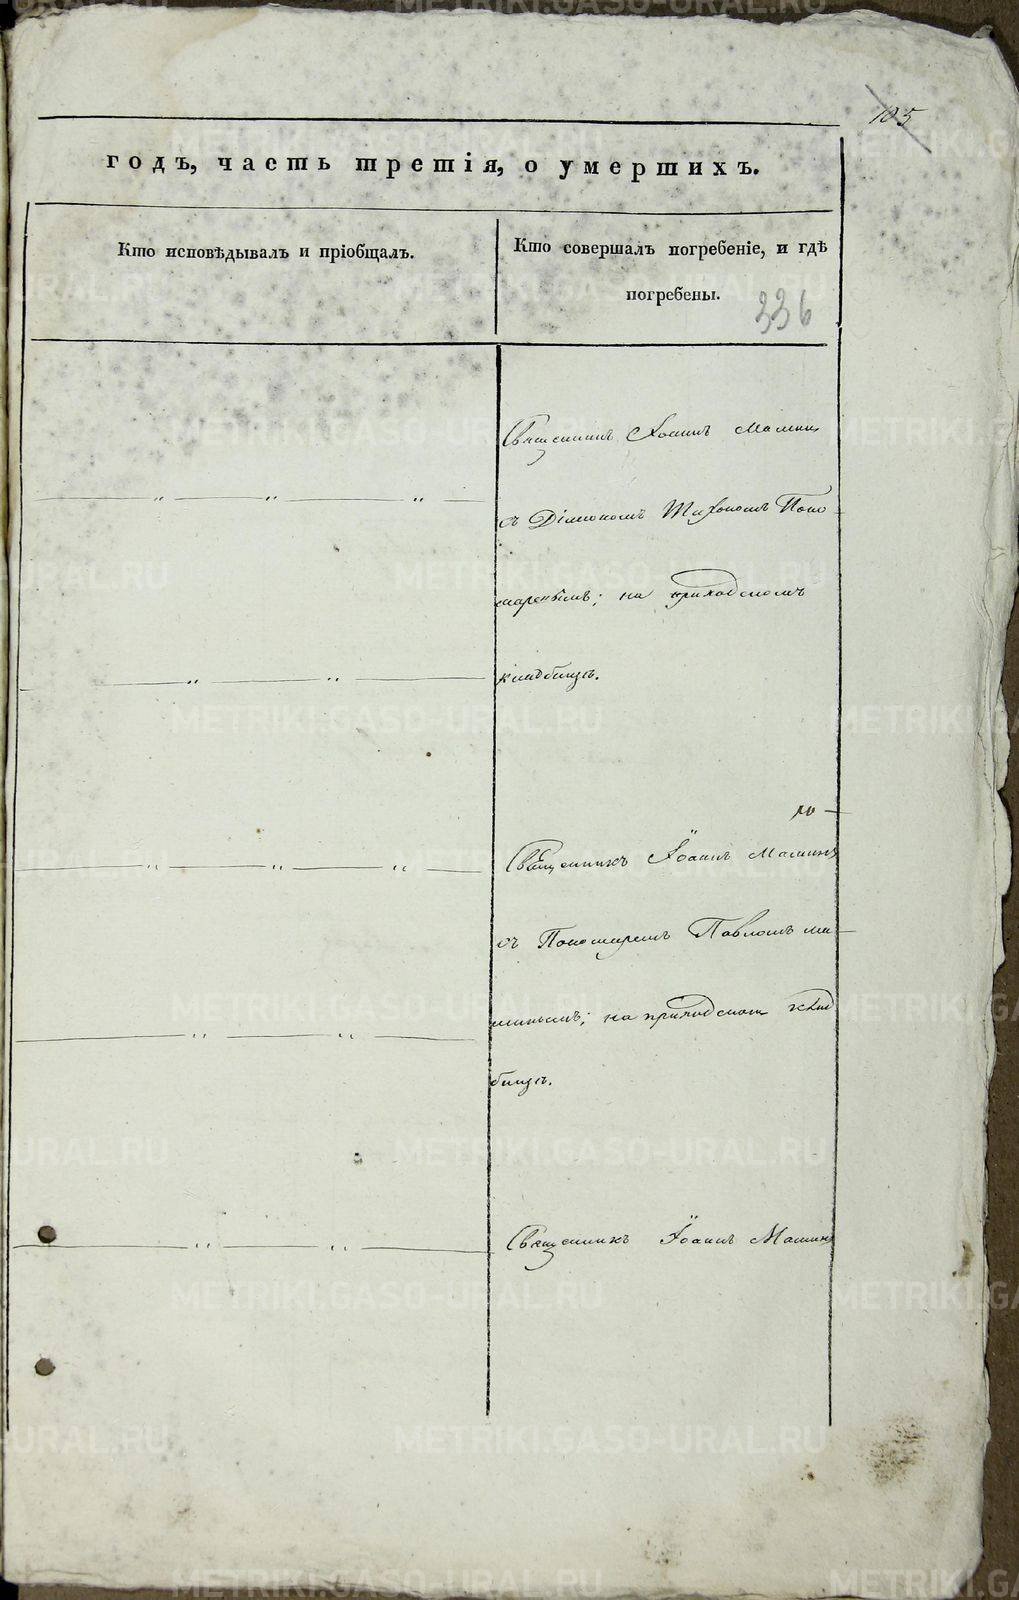 105
годъ, часть третія, о умершихъ.
Кто исповѣдывалъ и пріобщалъ.
Кто совершалъ погребеніе, и гдѣ
погребены.
336
Священникъ Іоаннъ
съ Діакономъ Тихономъ Поно
маревымъ; на приходскомъ
кладбищѣ.
Священникъ Іоаннъ
съ Пономаремъ Павломъ
на приходскомъ клад
бищѣ.
Священникъ Іоаннъ
METRIKI.GASO-URAL.RU